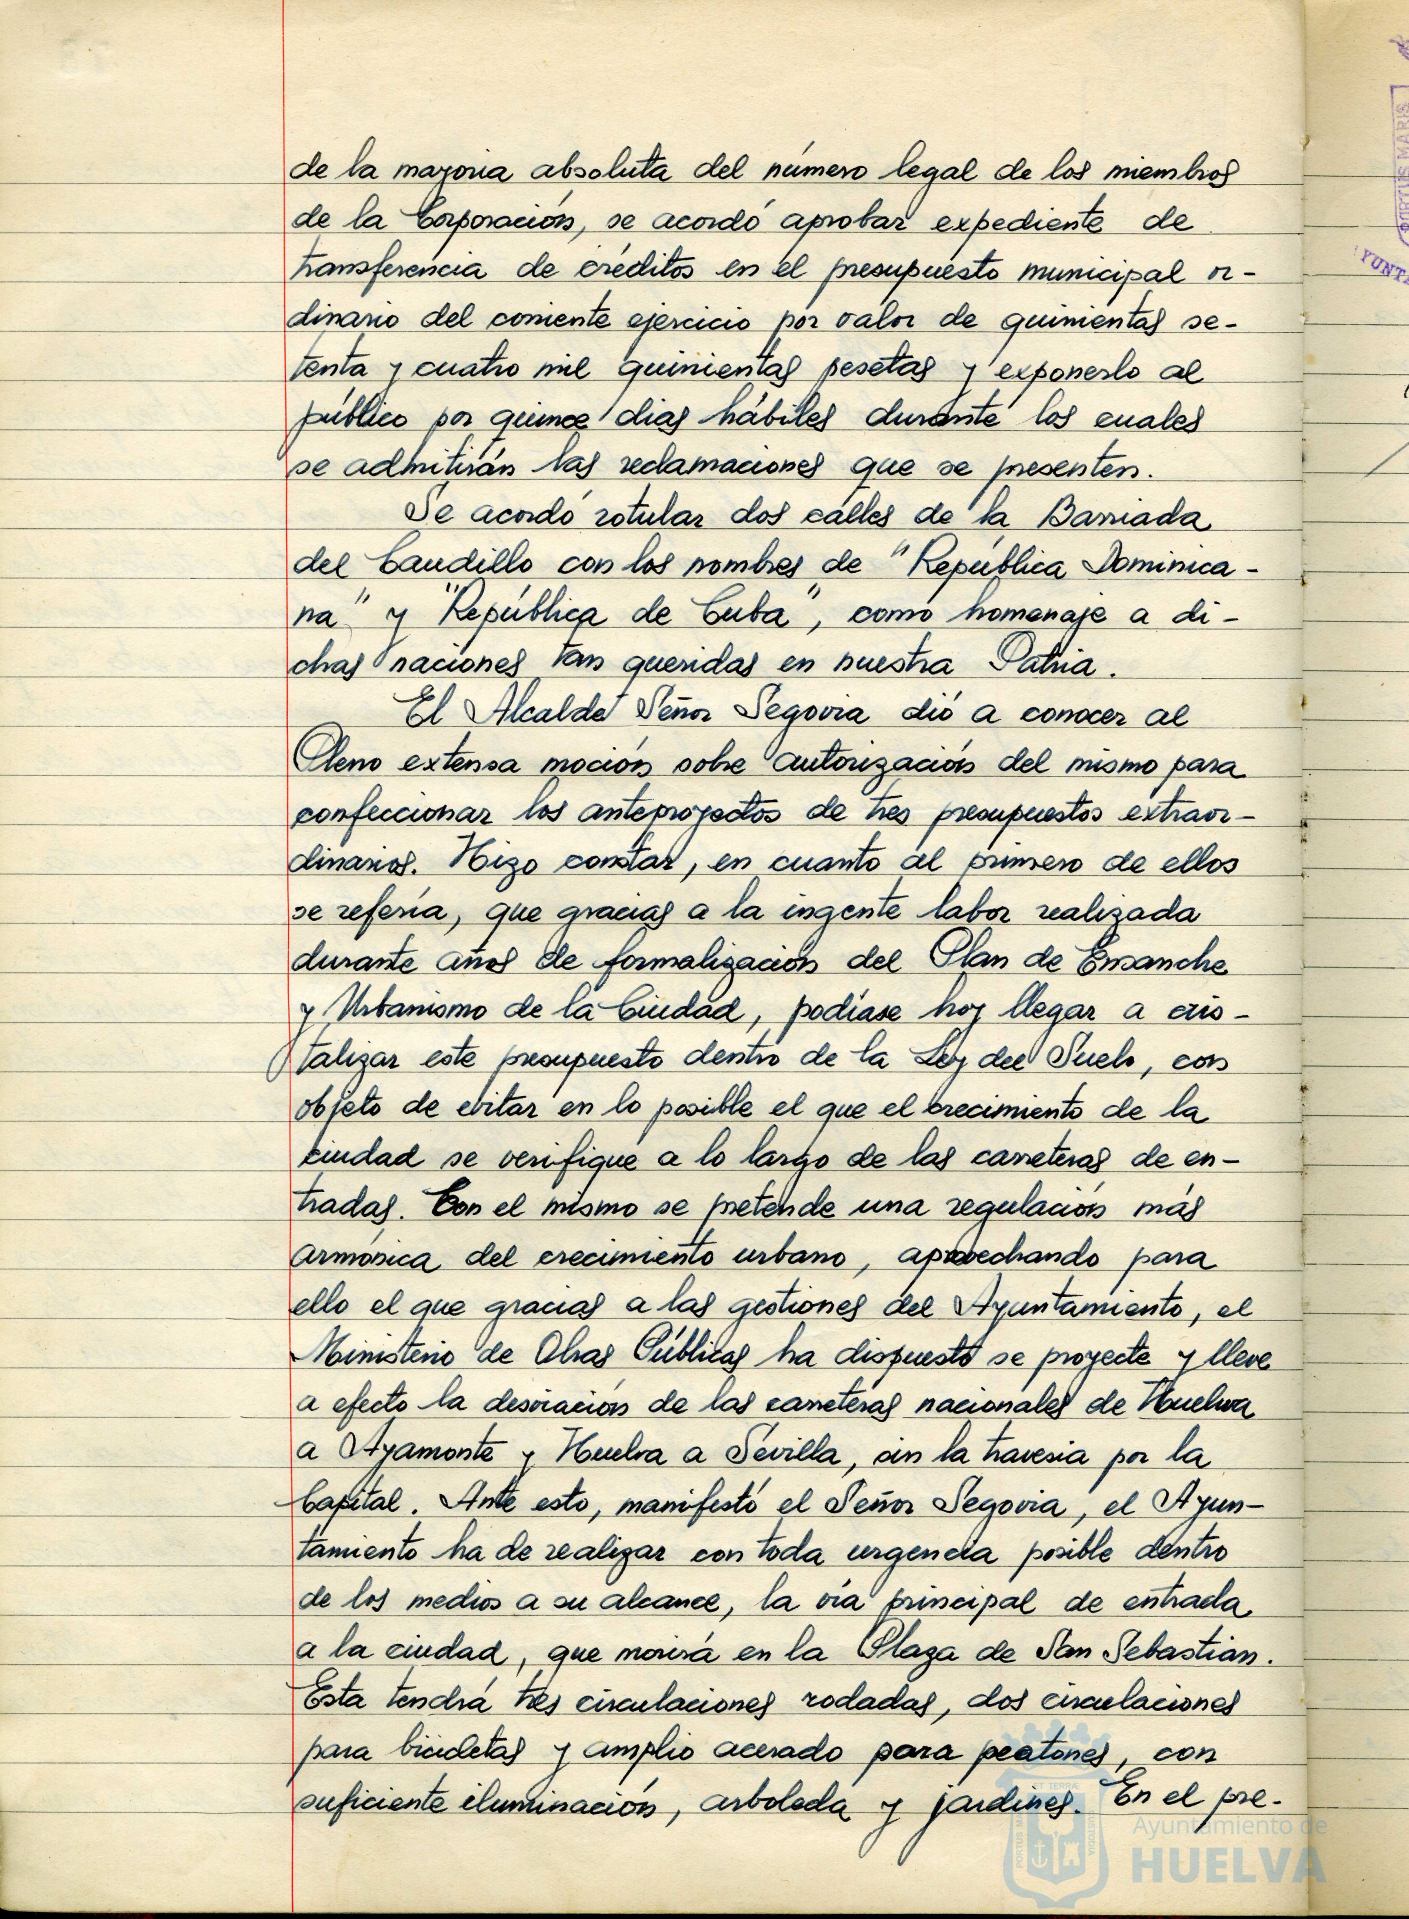 de la mayoria absoluta del número legal de los miembros
de la Corporación, se acordó aprobar expediente de
transferencia de créditos en el presupuesto municipal or-
dinario del corriente ejercicio por valor de quinientas se-
tenta y cuatro mil quinientas pesetas y exponerlo al
público por quince dias hábiles durante los cuales
se admitirán las reclamaciones que se presenten.
Se acordó rotular dos calles de la Barriada
del Caudillo con los nombres de "República Dominica-
na" y "República de Cuba", como homenaje a di-
chas naciones tan queridas en nuestra Patria.
El Alcalde Señor Segovia dió a conocer al
Pleno extensa moción sobre autorización del mismo para
confeccionar los anteproyectos de tres presupuestos extraor-
dinarios. Hizo constar, en cuanto al primero de ellos
se refería, que gracias a la ingente labor realizada
durante años de formalización del Plan de Ensanche
y Urbanismo de la Ciudad, podíase hoy llegar a cris-
talizar este presupuesto dentro de la Ley del Suelo, con
objeto de evitar en lo posible el que el crecimiento de la
ciudad se verifique a lo largo de las carreteras de en-
tradas. Con el mismo se pretende una regulación más
armónica del crecimiento urbano, aprovechando para
ello el que gracias a las gestiones del Ayuntamiento, el
Ministerio de Obras Públicas ha dispuesto se proyecte y lleve
a efecto la desviación de las carreteras nacionales de Huelva
a Ayamonte y Huelva a Sevilla, sin la travesia por la
Capital. Ante esto, manifestó el Señor Segovia, el Ayun-
tamiento ha de realizar con toda urgencia posible dentro
de los medios a su alcance, la vía principal de entrada
a la ciudad, que morirá en la Plaza de San Sebastian.
Esta tendrá tres circulaciones rodadas, dos circulaciones
para bicicletas y amplio acerado para peatones, con
suficiente iluminación, arboleda y jardines. En el pre-
Ayuntamiento de
HUELVA
PORTUS MARIS